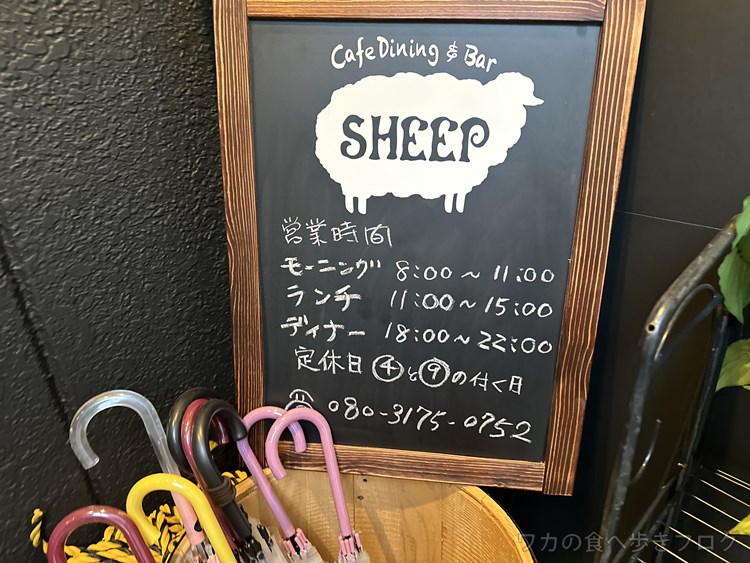 Cafe Dining & Bar
SHEEP
営業時間
モーニング 8:00〜11:00
ランチ 11:00〜15:00
ディナー 18:00〜22:00
定休日 ④と⑨の付く日
080-3175-0752
ワカの食べ歩きブログ